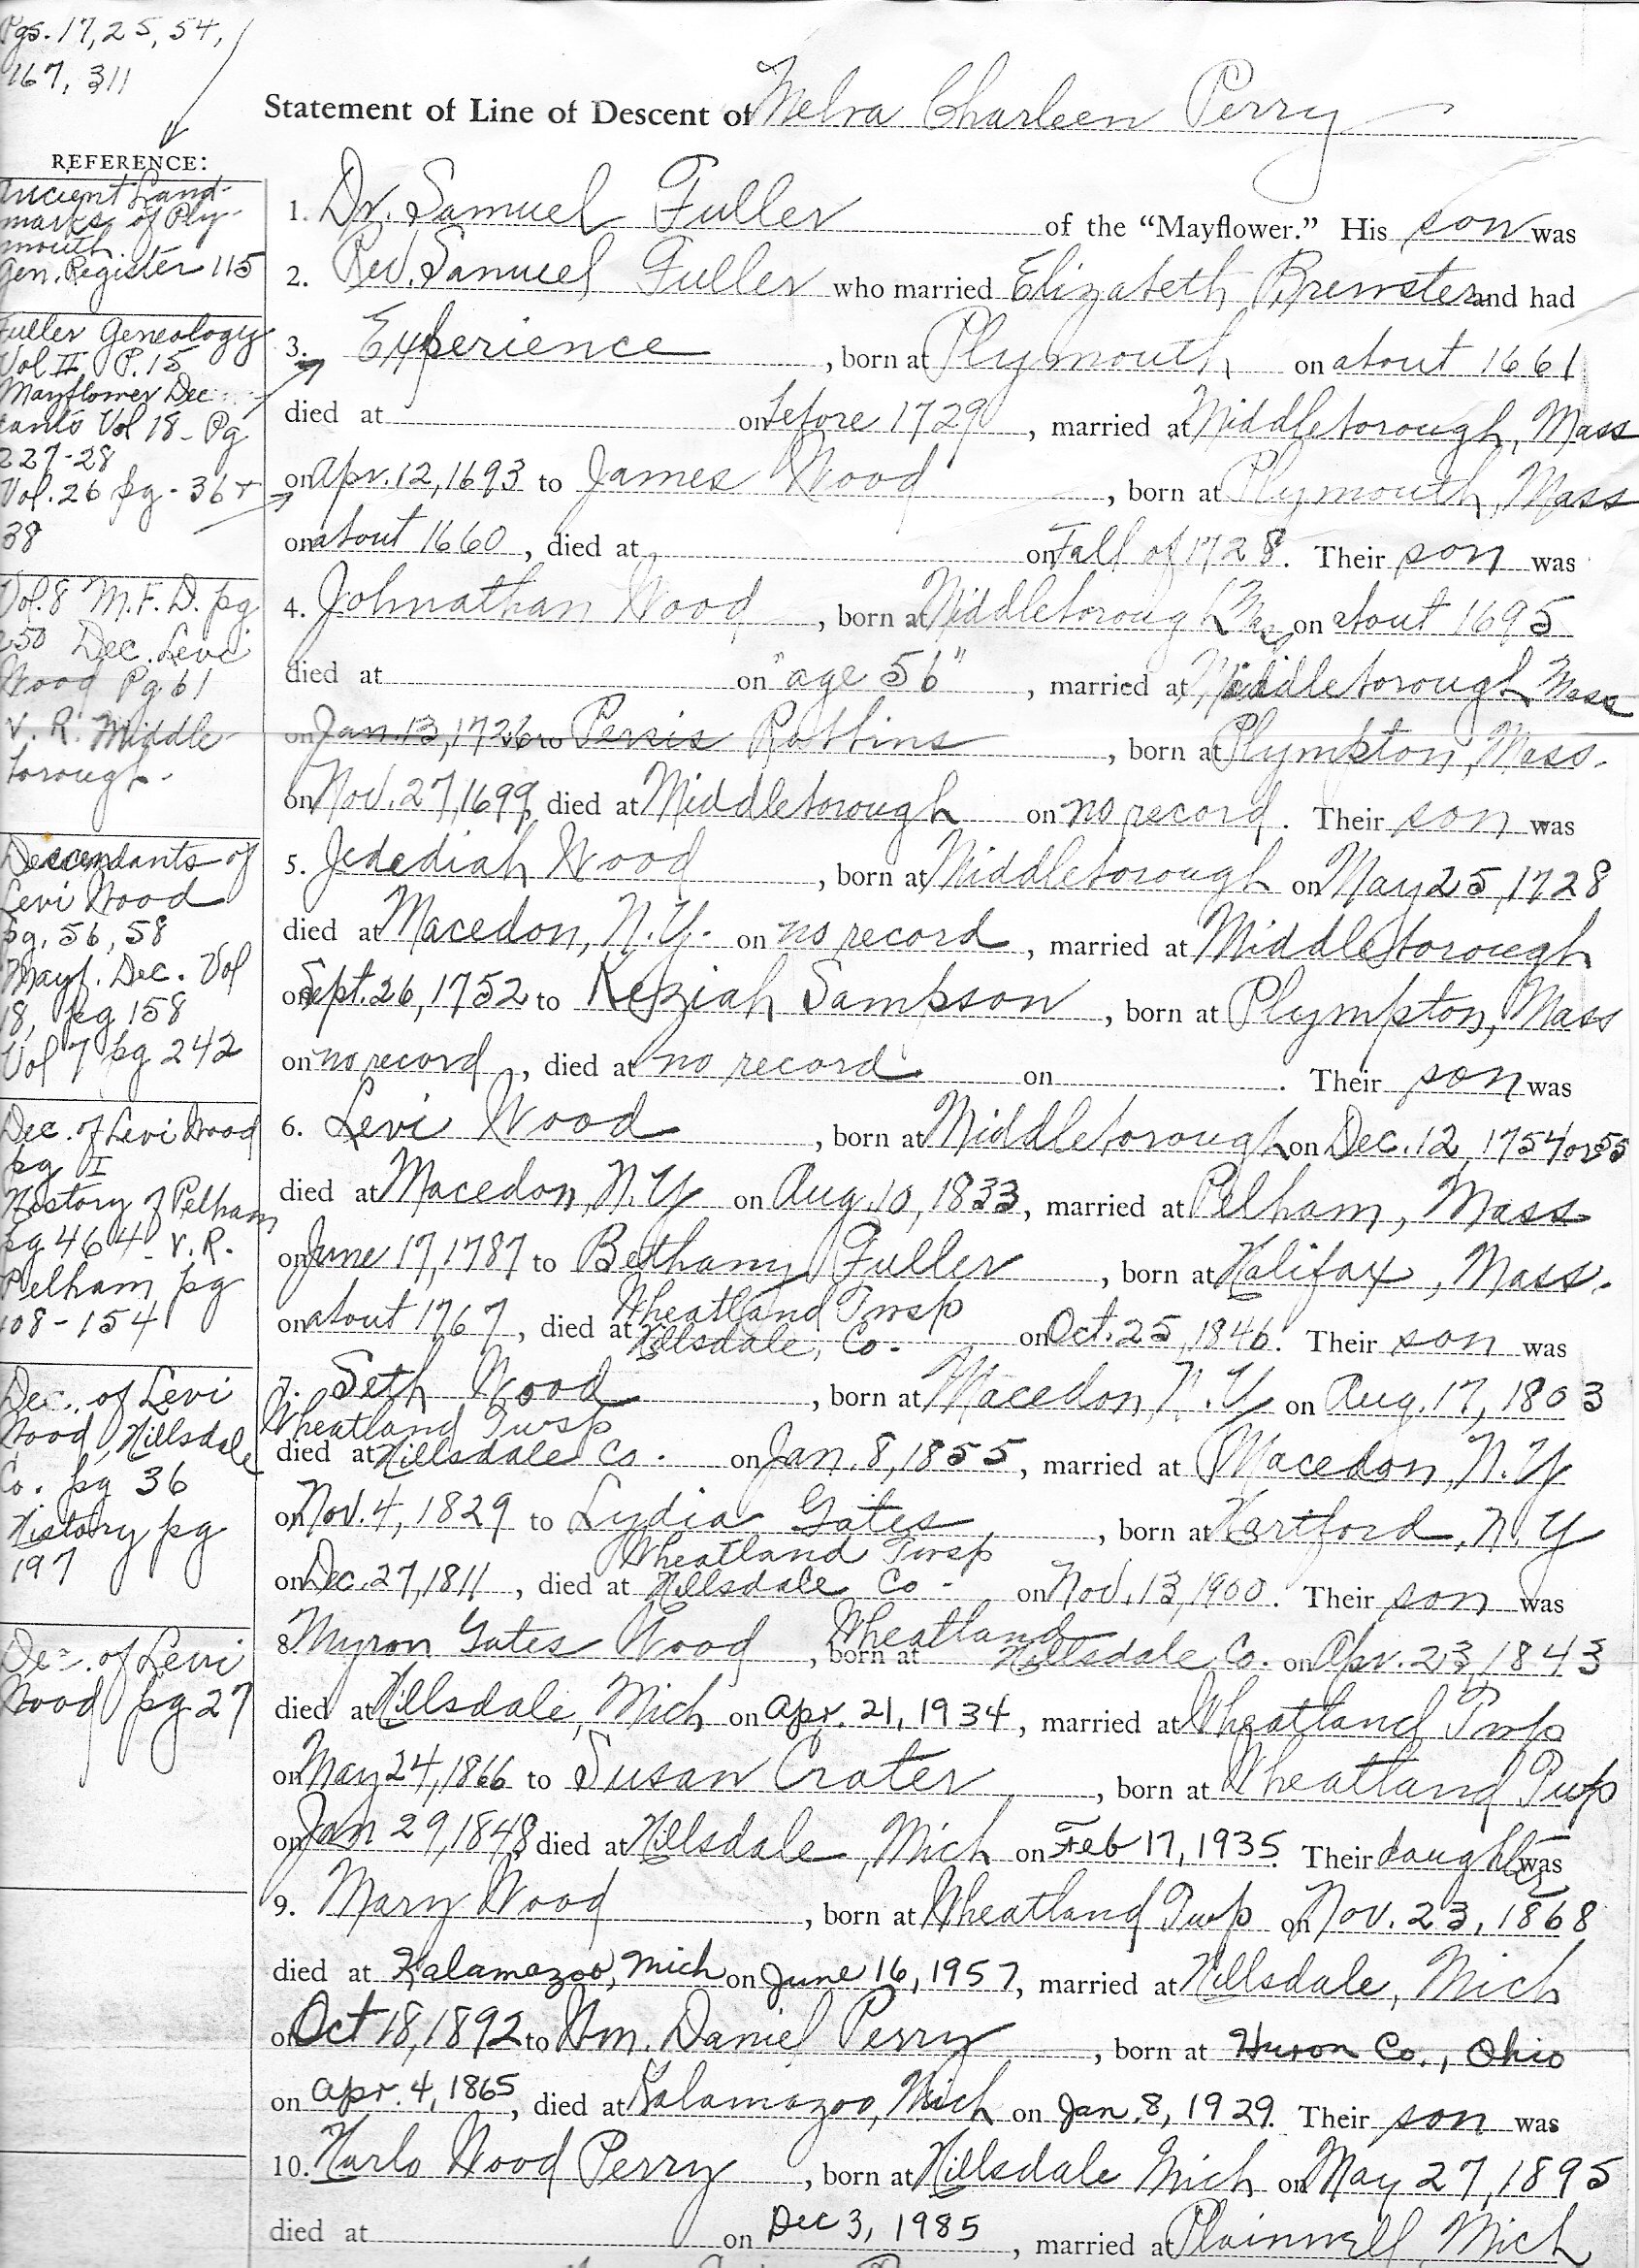 Pgs. 17, 25, 54,
167, 311
Statement of Line of Descent of Melva Charleen Perry
REFERENCE:
Ancient Land-
marks of Ply-
mouth.
Gen. Register 115
Fuller Geneology
Vol II, P. 15
Mayflower Dec
tants Vol 18 - Pg
227-28
Vol. 26 pg - 36 +
38
Vol. 8 M.F.D. pg
250 Dec. Levi
Wood Pg 61
V. R. Middle-
borough.
Descendants of
Levi Wood
pg. 56, 58
Mayf. Dec. Vol
18, pg 158
Vol 7 pg 242
Dec. of Levi Wood
pg I
History of Pelham
pg 464 - V.R.
Pelham pg
108-154
Dec. of Levi
Wood, Hillsdale
Co. pg 36
History pg
197
Dec. of Levi
Wood pg 27
1. Dr. Samuel Fuller of the "Mayflower." His son was
2. Rev. Samuel Fuller who married Elizabeth Brewster and had
3. Experience, born at Plymouth on about 1661
died at on before 1729, married at Middleborough, Mass
on Apr. 12, 1693 to James Wood, born at Plymouth, Mass
on about 1660, died at on Fall of 1728. Their son was
4. Johnathan Wood, born at Middleborough Mass on about 1695
died at on "age 56", married at Middleborough Mass
on Jan. 13, 1726 to Persis Robbins, born at Plympton, Mass.
on Nov. 27, 1699, died at Middleborough on no record. Their son was
5. Jedediah Wood, born at Middleborough on May 25, 1728
died at Macedon, N.Y. on no record, married at Middleborough
on Sept. 26, 1752 to Keziah Sampson, born at Plympton, Mass
on no record, died at no record on . Their son was
6. Levi Wood, born at Middleborough on Dec. 12, 1754 or 55
died at Macedon, N.Y on Aug. 10, 1833, married at Pelham, Mass
on June 17, 1787 to Bethany Fuller, born at Halifax, Mass.
on about 1767, died at Wheatland Twsp Hillsdale, Co. on Oct. 25, 1846. Their son was
7. Seth Wood, born at Macedon, N.Y on Aug. 17, 1803
Wheatland Twsp
died at Hillsdale Co. on Jan. 8, 1855, married at Macedon, N.Y
on Nov. 4, 1829 to Lydia Gates, born at Hartford, N.Y
on Dec. 27, 1811, died at Wheatland Twsp Hillsdale Co. on Nov. 13, 1900. Their son was
8. Myron Gates Wood, born at Wheatland Hillsdale Co. on Apr. 23, 1843
died at Hillsdale, Mich on Apr. 21, 1934, married at Wheatland Twp
on May 24, 1866 to Susan Crater, born at Wheatland Twp
on Jan 29, 1848, died at Hillsdale, Mich on Feb 17, 1935. Their daughter was
9. Mary Wood, born at Wheatland Twp on Nov. 23, 1868
died at Kalamazoo, Mich on June 16, 1957, married at Hillsdale, Mich
on Oct 18, 1892 to Wm. Daniel Perry, born at Huron Co., Ohio
on Apr. 4, 1865, died at Kalamazoo, Mich on Jan. 8, 1929. Their son was
10. Harlo Wood Perry, born at Hillsdale Mich on May 27, 1895
died at on Dec 3, 1985, married at Plainwell, Mich